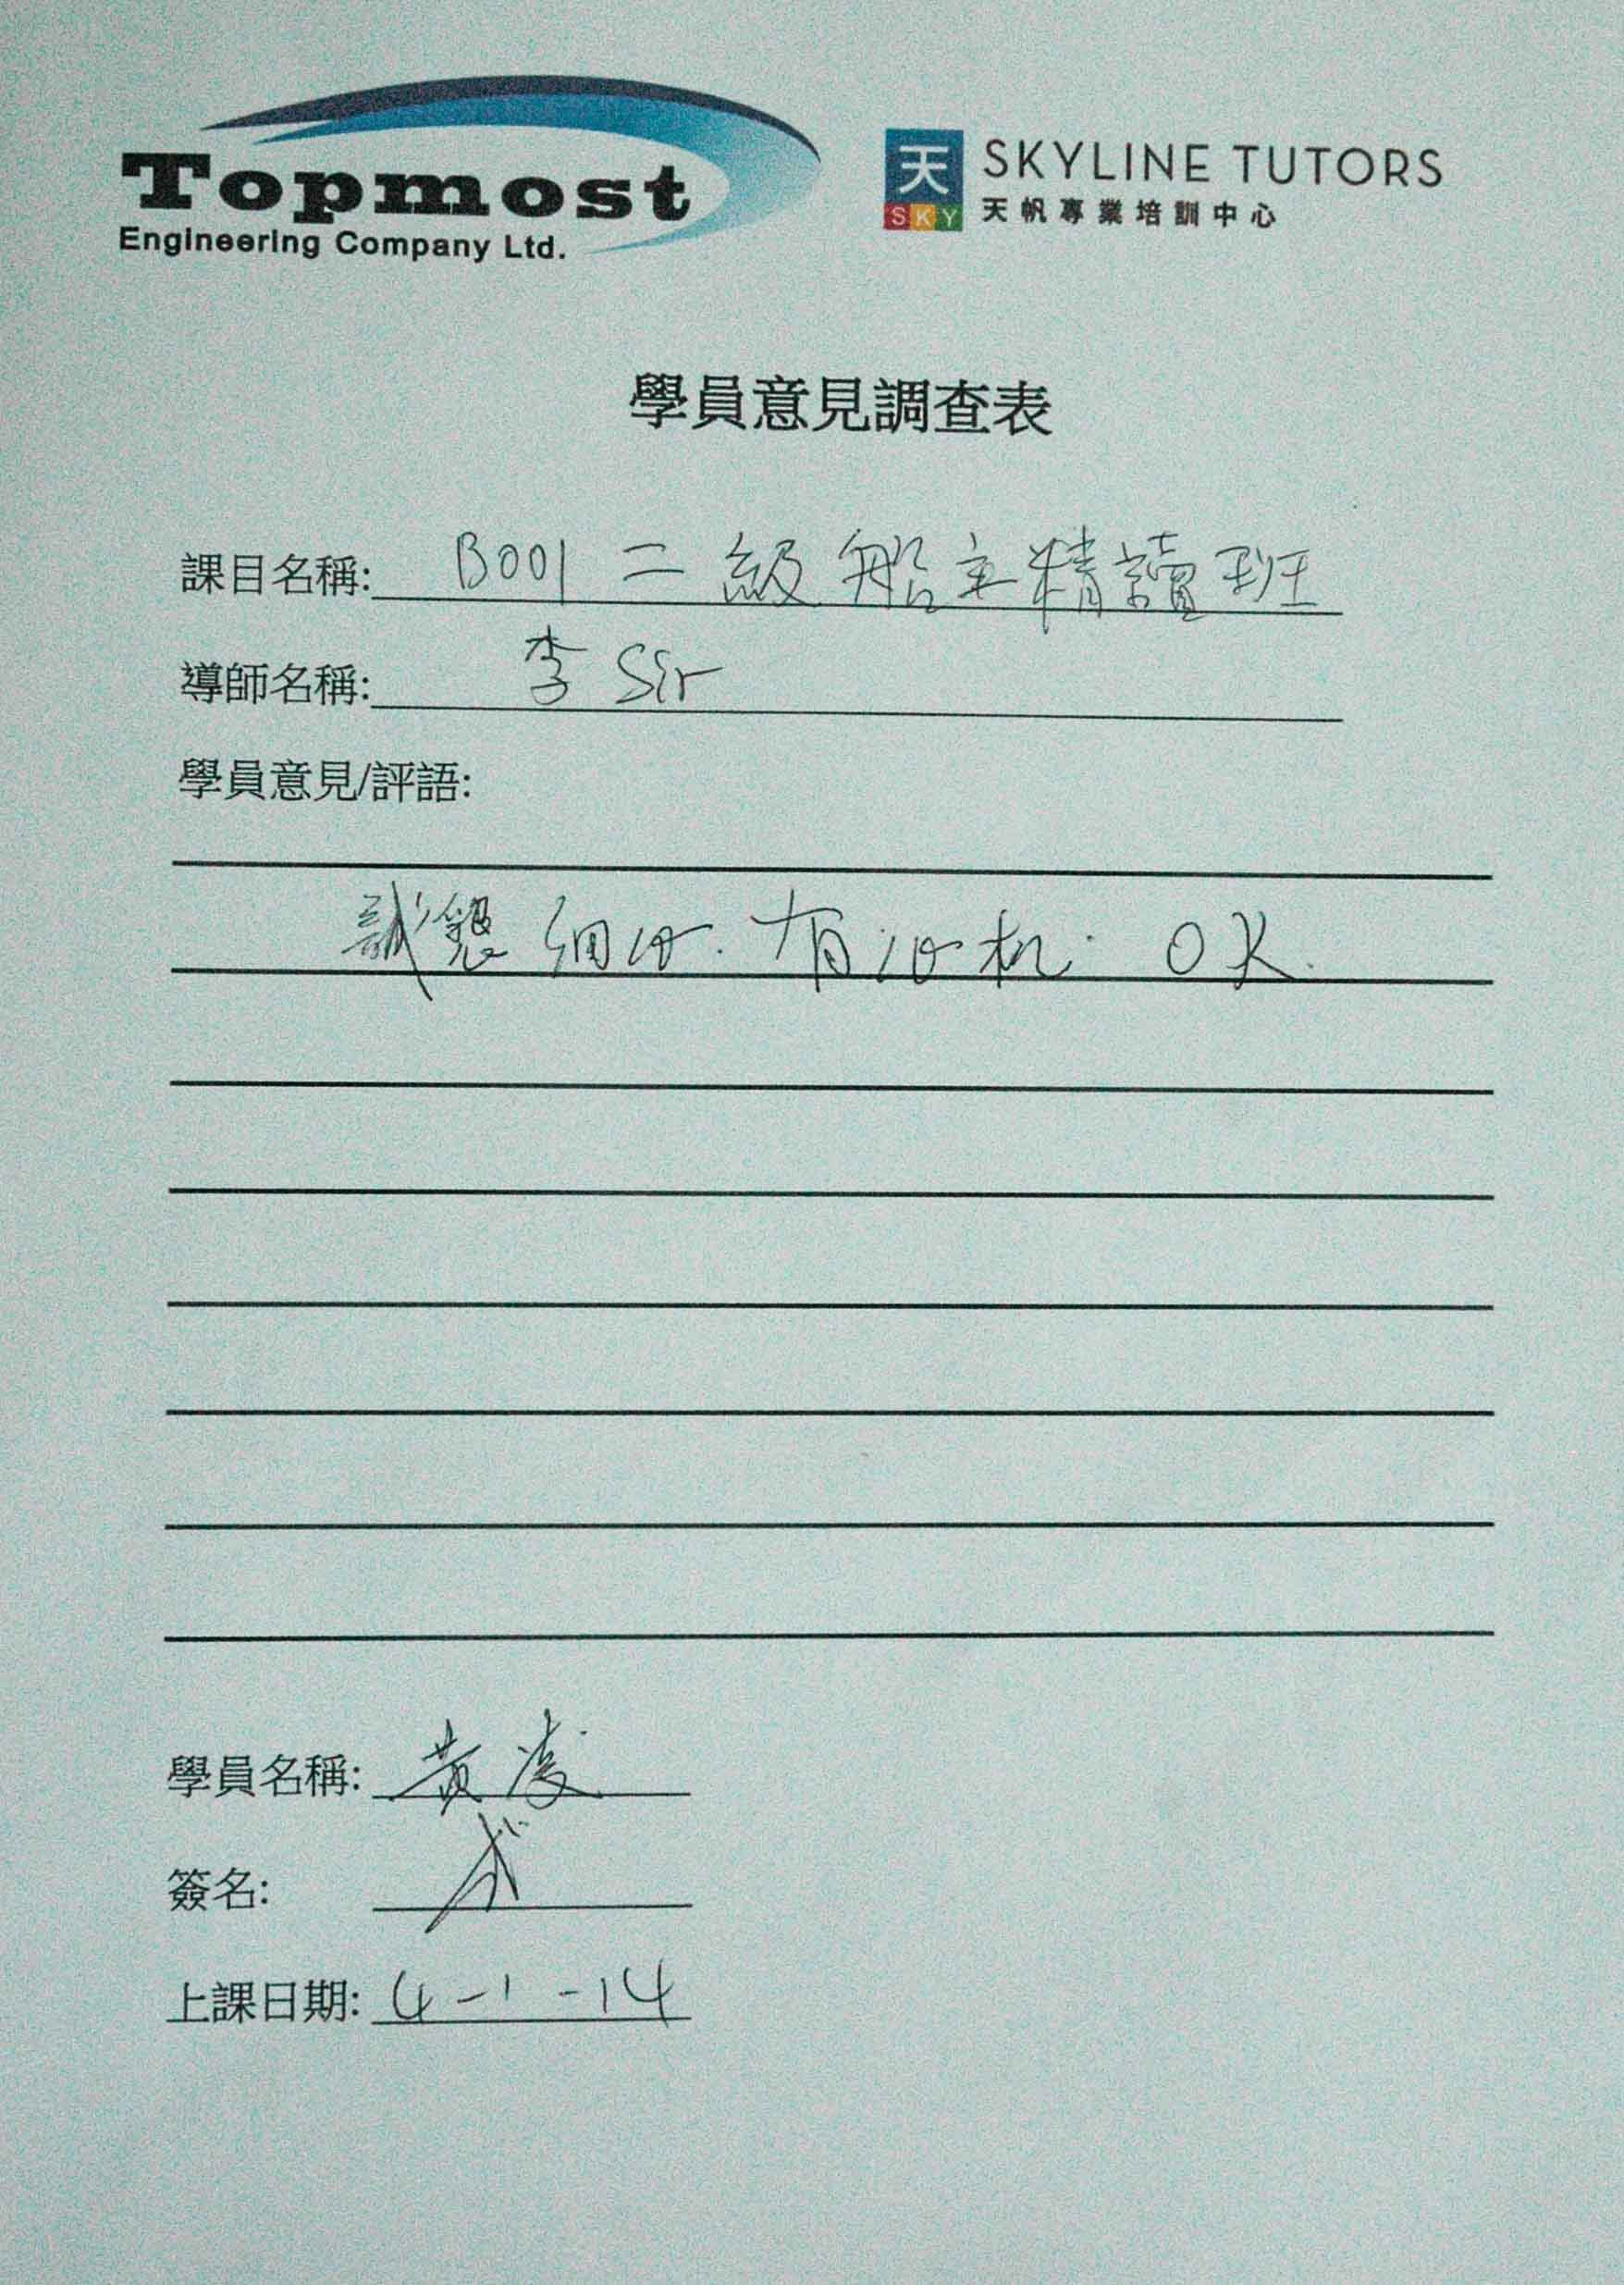 Topmost
Engineering Company Ltd.
天 SKY
SKYLINE TUTORS
天帆專業培訓中心
學員意見調查表
課目名稱: B001 二級船主精讀班
導師名稱: 李 Sir
學員意見/評語:
誠懇 細心. 有 OK.
學員名稱: 黃凌
簽名:
上課日期: 4-1-14